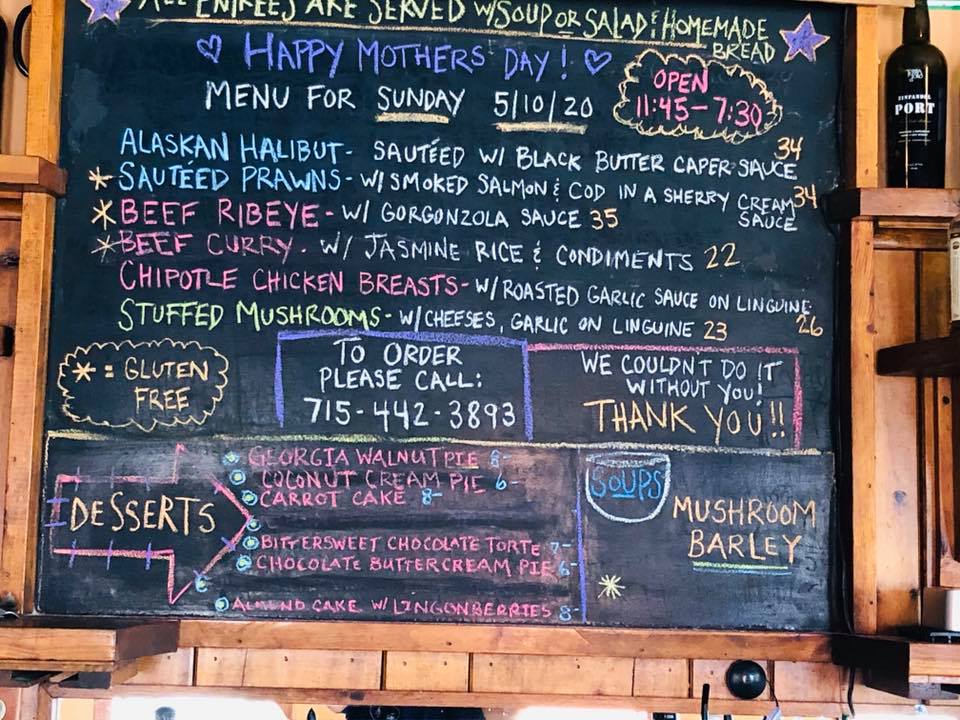 ALL ENTREES ARE SERVED W/SOUP OR SALAD & HOMEMADE
BREAD
HAPPY MOTHERS' DAY!
MENU FOR SUNDAY 5/10/20
OPEN
11:45-7:30
ALASKAN HALIBUT- SAUTÉED W/ BLACK BUTTER CAPER SAUCE 34
* SAUTÉED PRAWNS- W/ SMOKED SALMON & COD IN A SHERRY CREAM 34
SAUCE
* BEEF RIBEYE- W/ GORGONZOLA SAUCE 35
* BEEF CURRY. W/ JASMINE RICE & CONDIMENTS 22
CHIPOTLE CHICKEN BREASTS- W/ ROASTED GARLIC SAUCE ON LINGUINE
26
STUFFED MUSHROOMS- W/ CHEESES, GARLIC ON LINGUINE 23
* = GLUTEN
FREE
TO ORDER
PLEASE CALL:
715-442-3893
WE COULDNT DO IT
WITHOUT YOU!
THANK YOU!!
DESSERTS
GEORGIA WALNUT PIE 6-
COCONUT CREAM PIE 6-
CARROT CAKE 8-
BITTERSWEET CHOCOLATE TORTE 7-
CHOCOLATE BUTTERCREAM PIE 6-
ALMOND CAKE W/ LINGONBERRIES 8-
SOUPS
MUSHROOM
BARLEY
*
ZINFANDEL
PORT